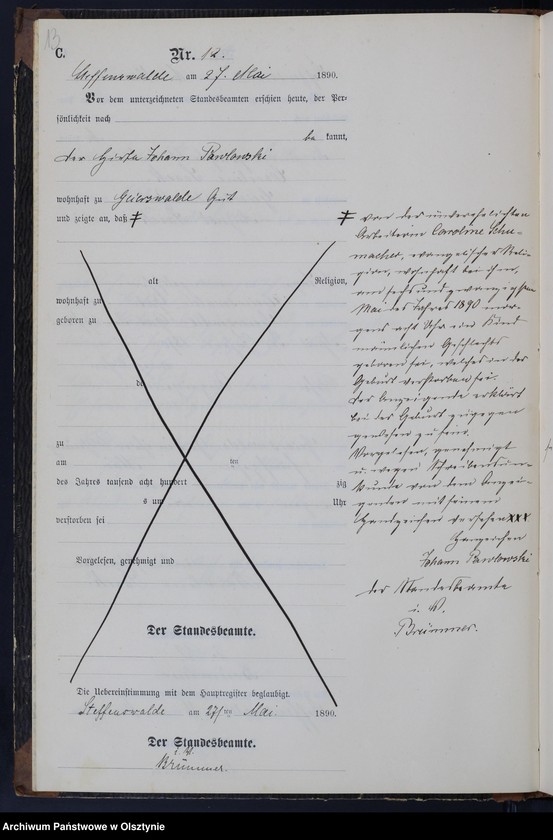 13
C.
Nr. 12.
Steffenswalde am 27. Mai 1890.
Vor dem unterzeichneten Standesbeamten erschien heute, der Per-
sönlichkeit nach
be kannt,
der Hirte Johann Pawlowski
wohnhaft zu Geierswalde Gut
und zeigte an, daß ǂ
alt Religion,
wohnhaft zu
geboren zu
da
zu
am ten
des Jahres tausend acht hundert zig
s um Uhr
verstorben sei
Vorgelesen, genehmigt und
Der Standesbeamte.
Die Uebereinstimmung mit dem Hauptregister beglaubigt.
Steffenswalde am 27ten Mai 1890.
Der Standesbeamte.
i. V.
Brümmer.
ǂ von der unverehelichten
Arbeiterin Caroline Schu-
macher, evangelischer Reli-
gion, wohnhaft bei ihm,
am sechsundzwanzigsten
Mai des Jahres 1890 mor-
gens acht Uhr ein Kind
männlichen Geschlechts
geboren sei, welches in der
Geburt verstorben sei.
Der Anzeigende erklärt
bei der Geburt zugegen
gewesen zu sein.
Vorgelesen, genehmigt
u. wegen Schreibensun-
kunde von dem Anzei-
genden mit seinem
Handzeichen versehen xxx
Handzeichen
Johann Pawlowski
der Standesbeamte
i. V.
Brümmer.
Archiwum Państwowe w Olsztynie